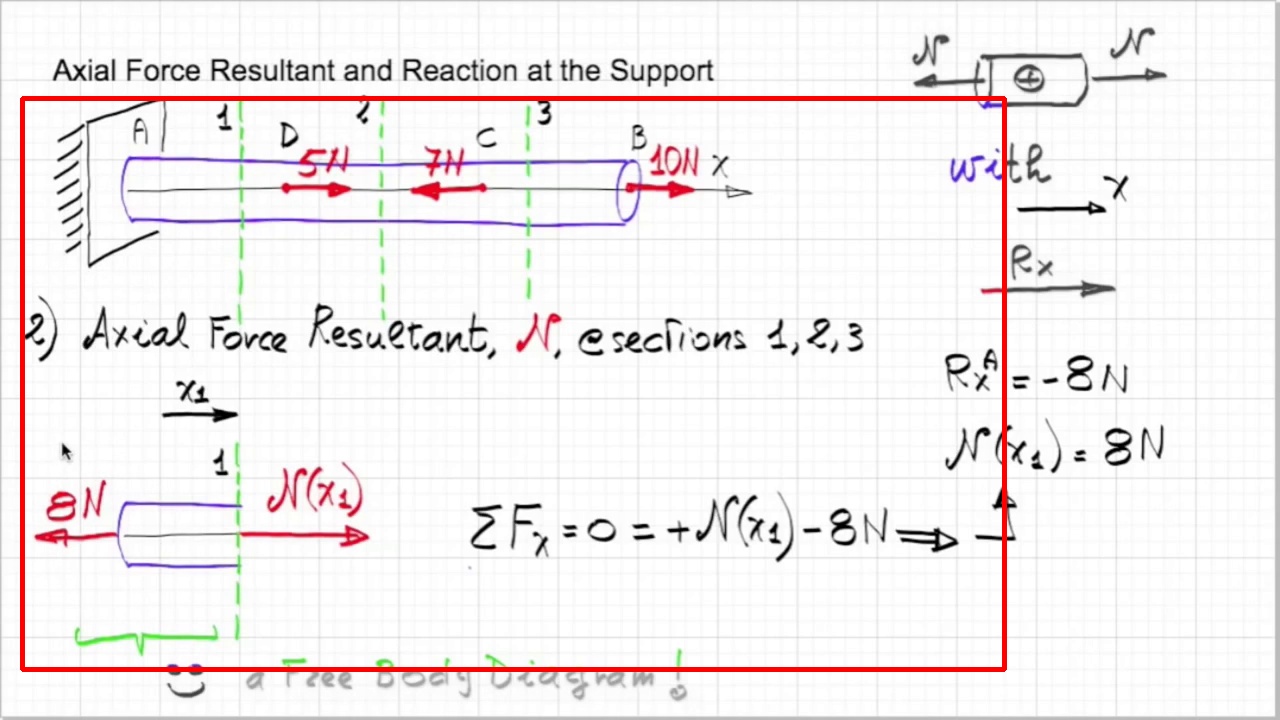 Axial Force Resultant and Reaction at the Support
N + N
1 2 3
A D C B
5N 7N 10N x
with
x
Rx
2) Axial Force Resultant, N, @sections 1,2,3
x1
RxA = -8N
N(x1) = 8N
1
8N N(x1)
ΣFx = 0 = +N(x1) - 8N ⟹
a Free Body Diagram!